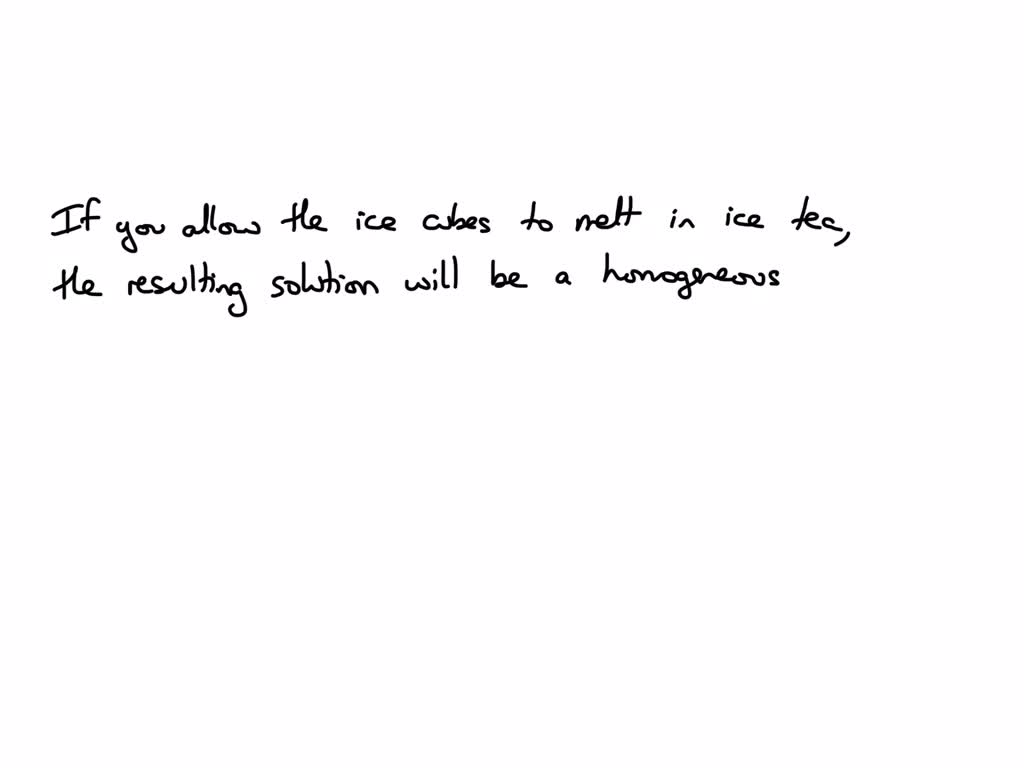 If you allow the ice cubes to melt in ice tea,
the resulting solution will be a homogeneous